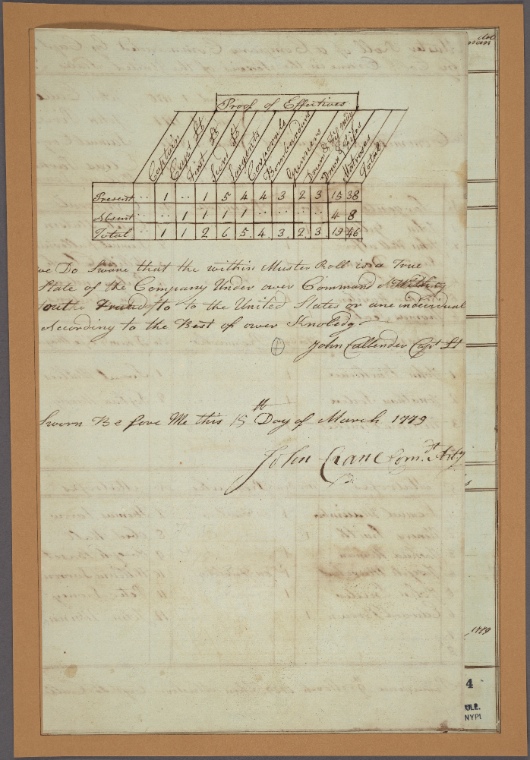 Proof of Effectives
Captain
Capt Lt
First Lt
Secnd Lt
Sargants
Corporals
Bombardears
Gunners
Drum & Fifes
Matroses
Total
Present .. 1 .. 1 5 4 4 3 2 3 15 38
Absent .. .. 1 1 1 .. .. .. .. .. 4 8
Total 1 1 2 6 5 4 3 2 3 19 46
we Do Swair that the within Muster Roll is a True
State of the Company Under over Command Without
Fraud to the United States or ane individual
According to the Best of over Knoledg
John Callender Capt Lt
Sworn Before Me this 15th Day of March 1779
John Crane Comdt Arty
1779
4
NYPL